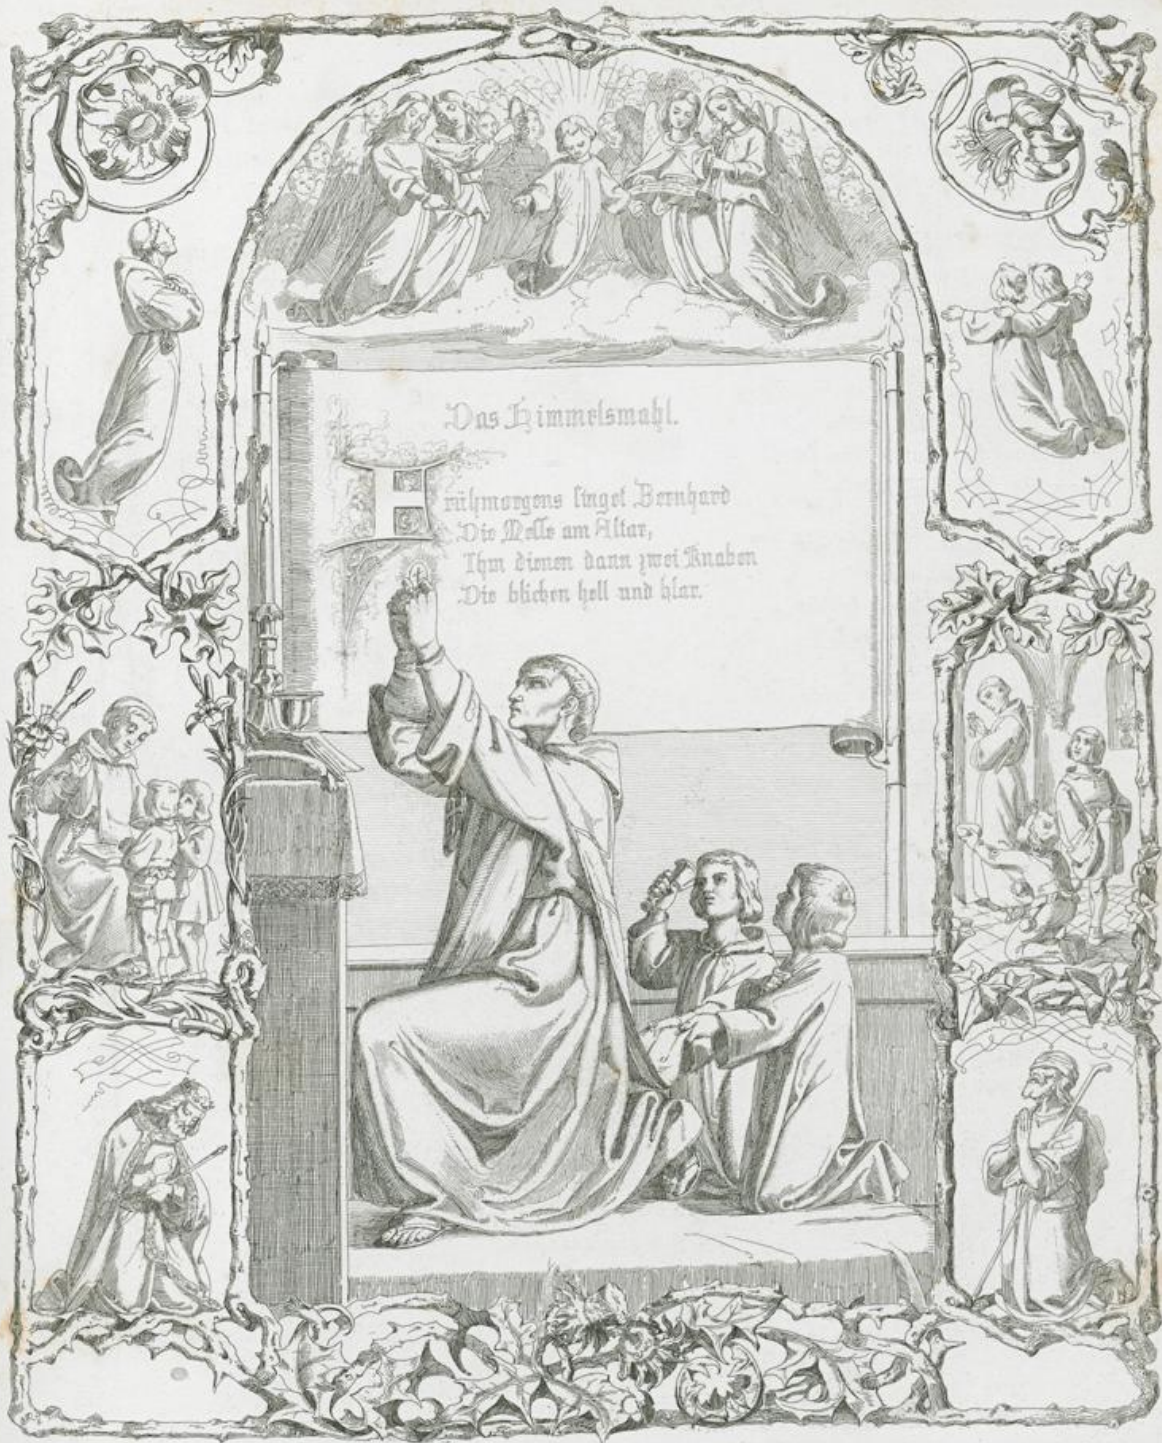 Das Himmelsmahl.
Frühmorgens singet Bernhard
Die Messe am Altar,
Ihm dienen dann zwei Knaben
Die blicken hell und klar.